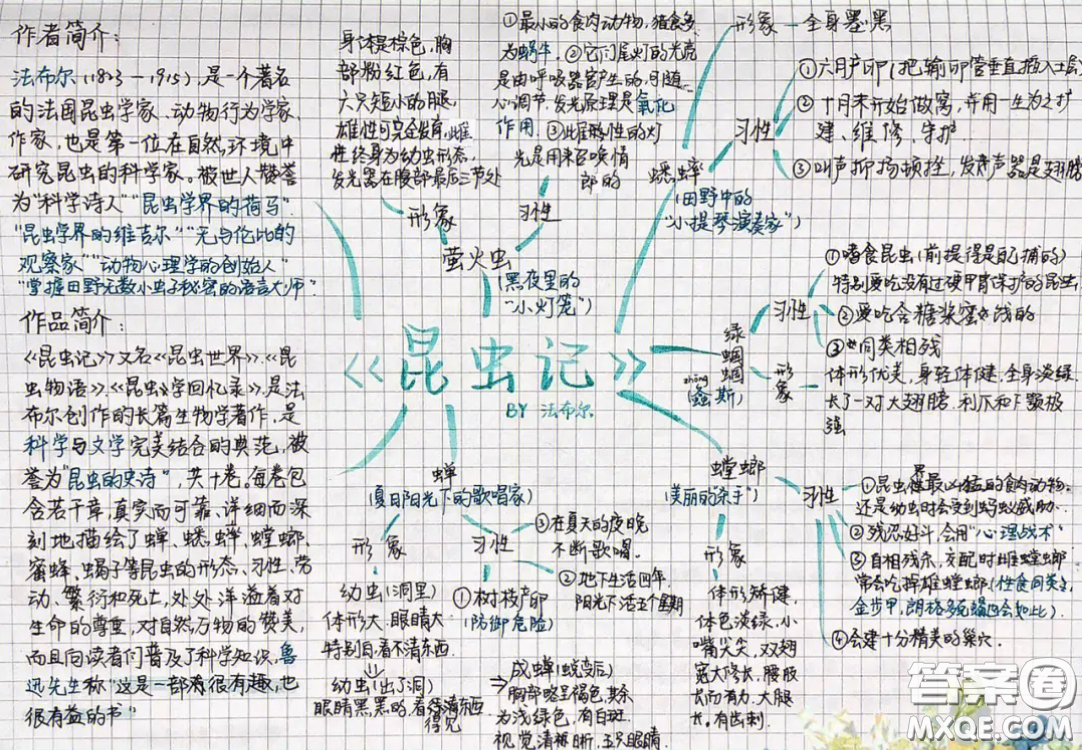 作者简介：
法布尔(1823—1915)，是一个著名
的法国昆虫学家、动物行为学家、
作家，也是第一位在自然环境中
研究昆虫的科学家。被世人赞誉
为"科学诗人""昆虫学界的荷马"
"昆虫学界的维吉尔""无与伦比的
观察家""动物心理学的创始人"
"掌握田野无数小虫子秘密的语言大师"
作品简介：
《昆虫记》又名《昆虫世界》《昆
虫物语》《昆虫学回忆录》是法
布尔创作的长篇生物学著作，是
科学与文学完美结合的典范，被
誉为"昆虫的史诗"，共十卷。每卷包
含若干章，真实而可靠、详细而深
刻地描绘了蝉、蟋蟀、螳螂、
蜜蜂、蝎子等昆虫的形态、习性、劳
动、繁衍和死亡，处处洋溢着对
生命的尊重，对自然万物的赞美，
而且向读者们普及了科学知识，鲁
迅先生称"这是一部很有趣，也
很有益的书"
身体是棕色，胸
部粉红色，有
六只短小的腿，
雄性可完全发育，雌
性终身为幼虫形态，
发光器在腹部最后三节处
形象
①最小的食肉动物，猎食多
为蜗牛。②它们尾灯的光亮
是由呼吸器官产生的，可随
心调节，发光原理是氧化
作用。③此雌性的灯
光是用来召唤情
郎的
习性
萤火虫
(黑夜里的
"小灯笼")
形象—全身墨黑
①六月产卵(把输卵管垂直插入土层)
②十月末开始做窝，并用一生为之扩
建、维修、守护
③叫声抑扬顿挫，发声器是翅膀
习性
蟋蟀
(田野中的
"小提琴演奏家")
《昆虫记》
BY 法布尔
绿
蝈
蝈
zhōng
(螽斯)
习性
①嗜食昆虫(前提得是自己捕的)
特别爱吃没有过硬甲胄保护的昆虫
②爱吃含糖浆蜜饯的
③同类相残
形象
体形优美，身轻体健，全身淡绿，
长了一对大翅膀，利爪和下颚极
强
蝉
(夏日阳光下的歌唱家)
形象
习性
③在夏天的夜晚
不断歌唱。
②地下生活四年，
阳光下活五个星期
①树枝产卵
(防御危险)
幼虫(洞里)
体形大，眼睛大
特别白，看不清东西
幼虫(出了洞)
眼睛黑,黑的,看得清东西
得见
→成蝉(蜕变后)
胸部略呈褐色，其余
为浅绿色，有白斑，
视觉清晰，五只眼睛。
螳螂
(美丽的"杀手")
形象
体形矫健，
体色淡绿，小
嘴尖尖，双翅
宽大修长，腰肢
长而有力，大腿
长。有齿刺。
习性
①昆虫界最凶猛的食肉动物，
还是幼虫时会受到蚂蚁威胁…
②残忍好斗，会用"心理战术"
③自相残杀，交配时雌螳螂
常会吃掉雄螳螂(性食同类),
金步甲，朗格多克蝎也会如此)。
④会建十分精美的巢穴。
答案圈
MXQE.COM